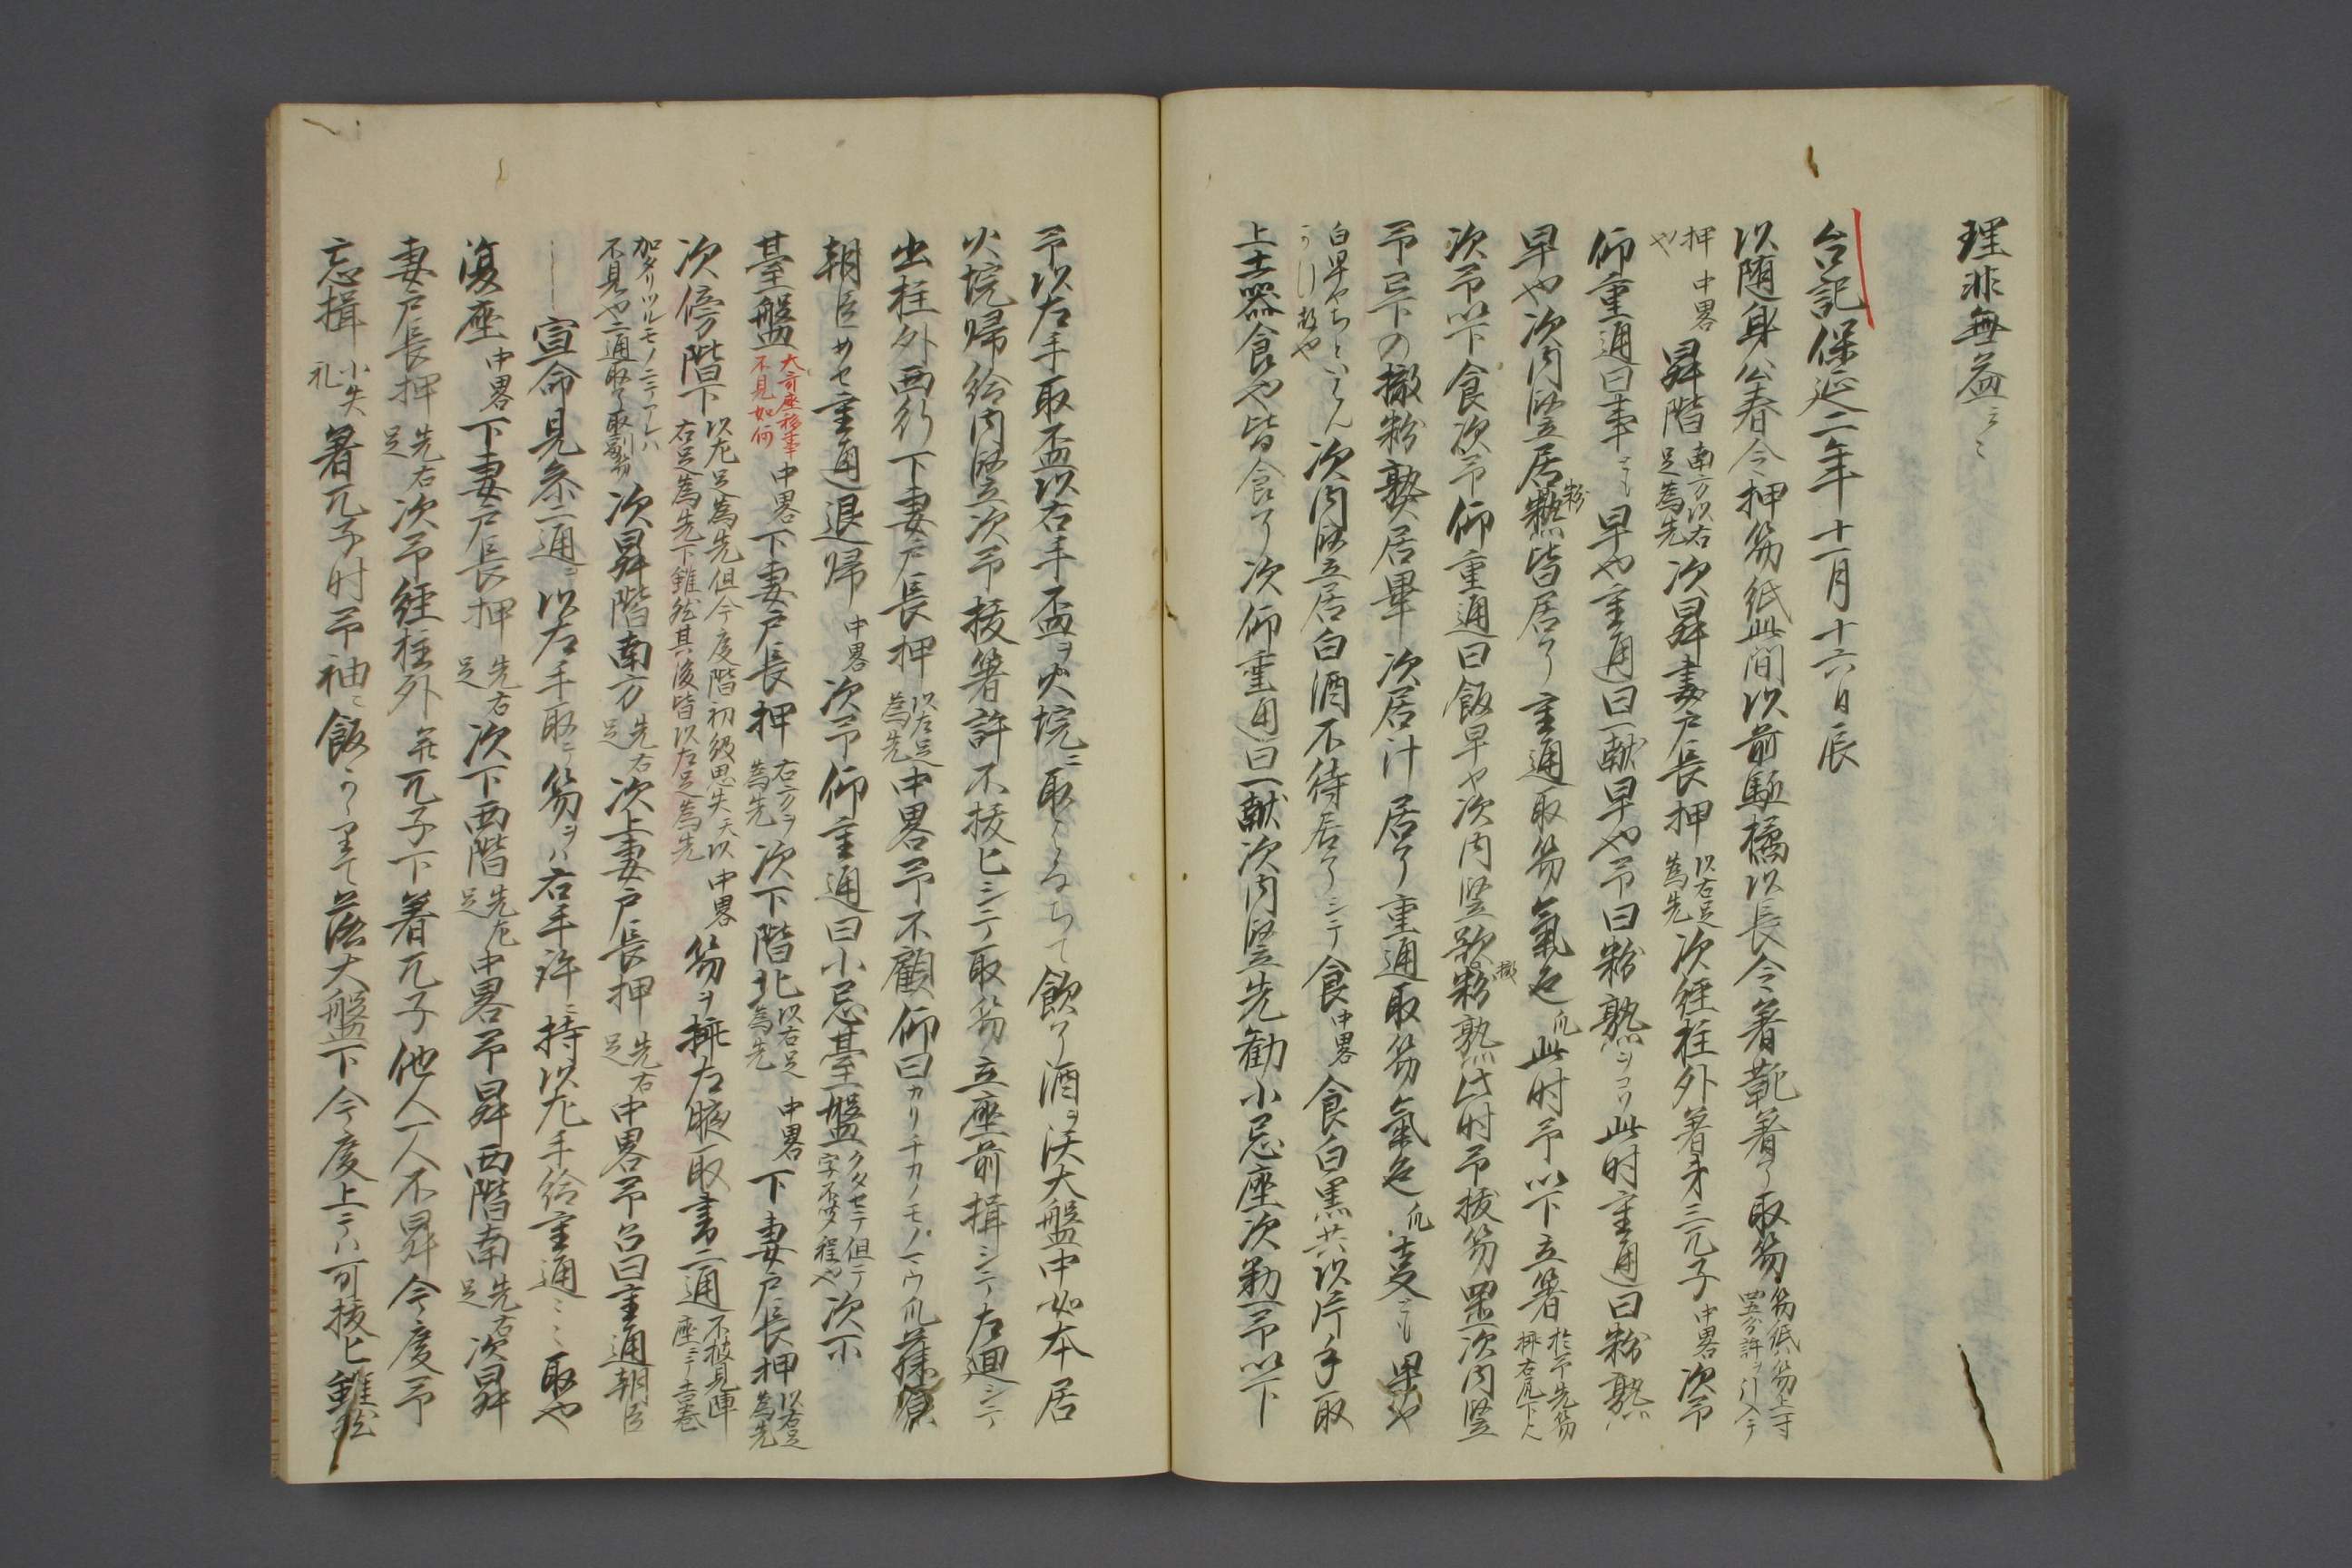 理非無益云々
台記保延二年十一月十六日辰
以随身公春令押笏紙此間以前駈橘以長令著靴著了取笏笏紙笏上一寸四五分許ヲ引入テ
押や中畧昇階南方以右足為先次昇妻戸長押以右足為先次經柱外著第三兀子中畧次予
仰重通曰事ども早や重通曰一献早や予曰粉熟ヲコリ此时重通曰粉熟
早や次内竪居粉熟皆居了重通取笏氣色爪此时予以下立箸於予先笏挿右
次予以下食次予仰重通曰飯早や次内竪撤粉熟此时予拔笏置次内竪
予已下の撤粉熟居畢次居汁居了重通取笏氣色爪早や
白早や次内竪居白酒不待居了シテ食中畧食白黒共以片手取
上土器食や皆食了次仰重通曰一献次内竪先勧小忌座次勧予以下
予以左手取盃以右手盃ヲ火垸ニ取て飲了酒ヲ沃大盤中必本居
火垸帰給内竪次予拔箸許不拔匕シテ取笏立座前揖シテ左廻シテ
出柱外西行下妻戸長押以左足為先中畧予不顧仰曰カリチカノモノマウ爪藤原
朝臣めせ重通退帰中畧次予仰重通曰小忌臺盤クタセテ但テ字不
程や次下
臺盤大哥座移事不見如何中畧下妻戸長押右方ヲ為先次下階北以右足為先中畧下妻戸長押以右足為先
次停階下以左足為先但今度階初級思失天以右足為先下雖然其後皆以左足為先中畧笏ヲ挿左腋取書二通不披見陣座ニテ
加タリツルモノニテアレハ不見や二通取了取副笏次昇階南方先右足次上妻戸長押先右足中畧予召曰重通朝臣
宣命見参二通ヲ以左手取テ笏ヲハ右手許ニ持以左手給重通々々取や
復座中畧下妻戸長押先右足次下西階先左足中畧予昇西階南先右足次昇
妻戸長押先右足次予經柱外兀子下著兀子他人一人不昇今度予
忘揖小失礼著兀子时予袖ニ飯大盤下今度上テハ可拔匕雖然